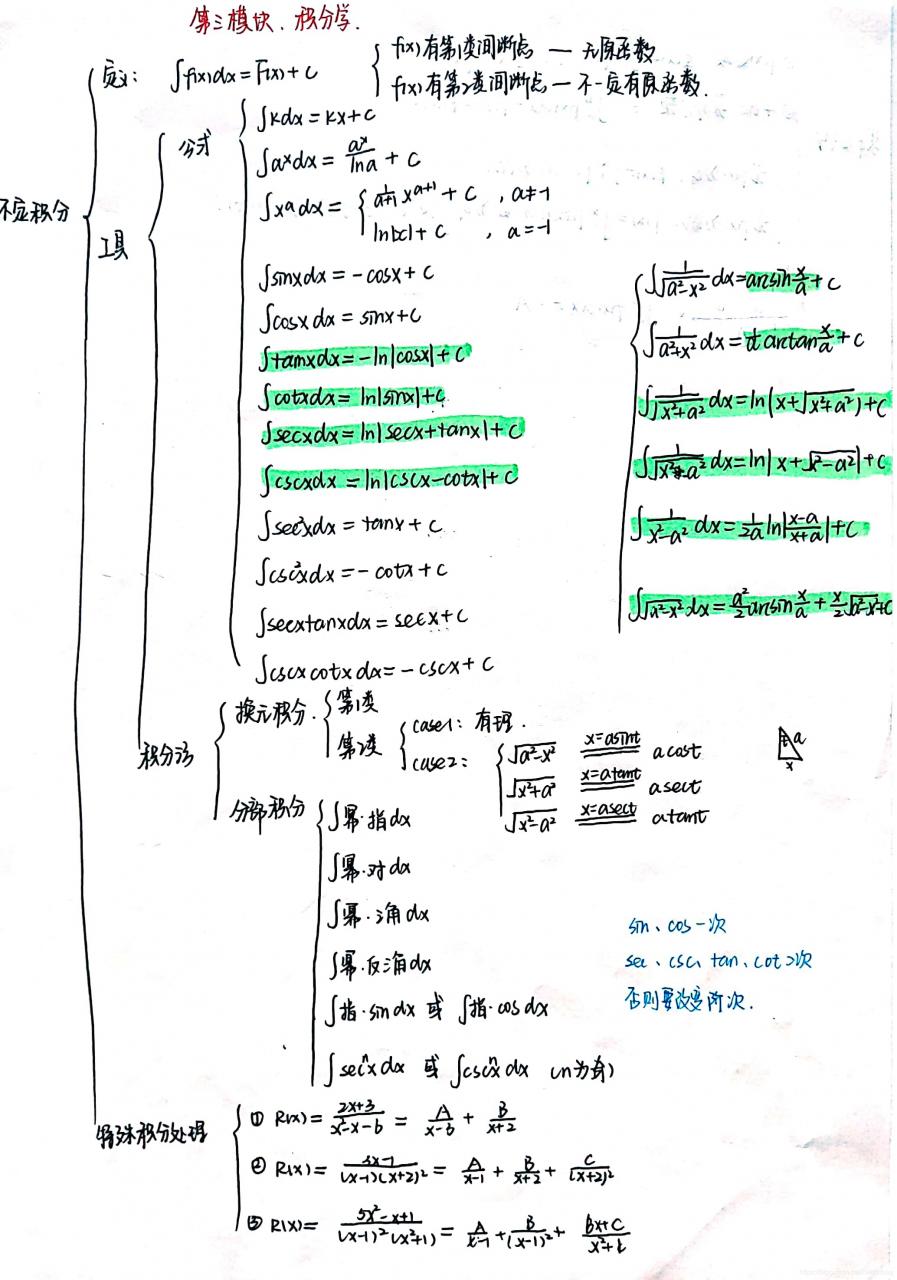 第三模块、积分学.
不定积分
定义: ∫f(x)dx = F(x) + C
f(x)有第1类间断点 — 无原函数
f(x)有第2类间断点 — 不一定有原函数.
工具
公式
∫kdx = kx + C
∫aˣdx = aˣ/lna + C
∫xᵃdx = { 1/(a+1) xᵃ⁺¹ + C , a≠-1
ln|x| + C , a=-1
∫sinxdx = -cosx + C
∫cosxdx = sinx + C
∫tanxdx = -ln|cosx| + C
∫cotxdx = ln|sinx| + C
∫secxdx = ln|secx+tanx| + C
∫cscxdx = ln|cscx-cotx| + C
∫sec²xdx = tanx + C
∫csc²xdx = -cotx + C
∫secxtanxdx = secx + C
∫cscxcotxdx = -cscx + C
∫1/√(a²-x²) dx = arcsin x/a + C
∫1/(a²+x²) dx = 1/a arctan x/a + C
∫1/√(x²+a²) dx = ln(x+√(x²+a²)) + C
∫1/√(x²-a²) dx = ln|x+√(x²-a²)| + C
∫1/(x²-a²) dx = 1/2a ln|(x-a)/(x+a)| + C
∫√(a²-x²) dx = a²/2 arcsin x/a + x/2 √(a²-x²) + C
积分法
换元积分.
第1类
第2类
case1: 有理.
case2:
√(a²-x²) x=asint acost
√(x²+a²) x=atant asect
√(x²-a²) x=asect atant
a
x
分部积分
∫幂·指dx
∫幂·对dx
∫幂·三角dx
∫幂·反三角dx
∫指·sindx 或 ∫指·cosdx
∫secⁿxdx 或 ∫cscⁿxdx (n为奇)
sin、cos一次
sec、csc、tan、cot 2次
否则要改变阶次.
特殊积分处理
① R(x) = (2x+3)/(x²-x-6) = A/(x-6) + B/(x+2)
② R(x) = (3x-1)/((x-1)(x+2)²) = A/(x-1) + B/(x+2) + C/(x+2)²
③ R(x) = (5x²-x+1)/((x-1)²(x²+1)) = A/(x-1) + B/(x-1)² + (Bx+C)/(x²+1)